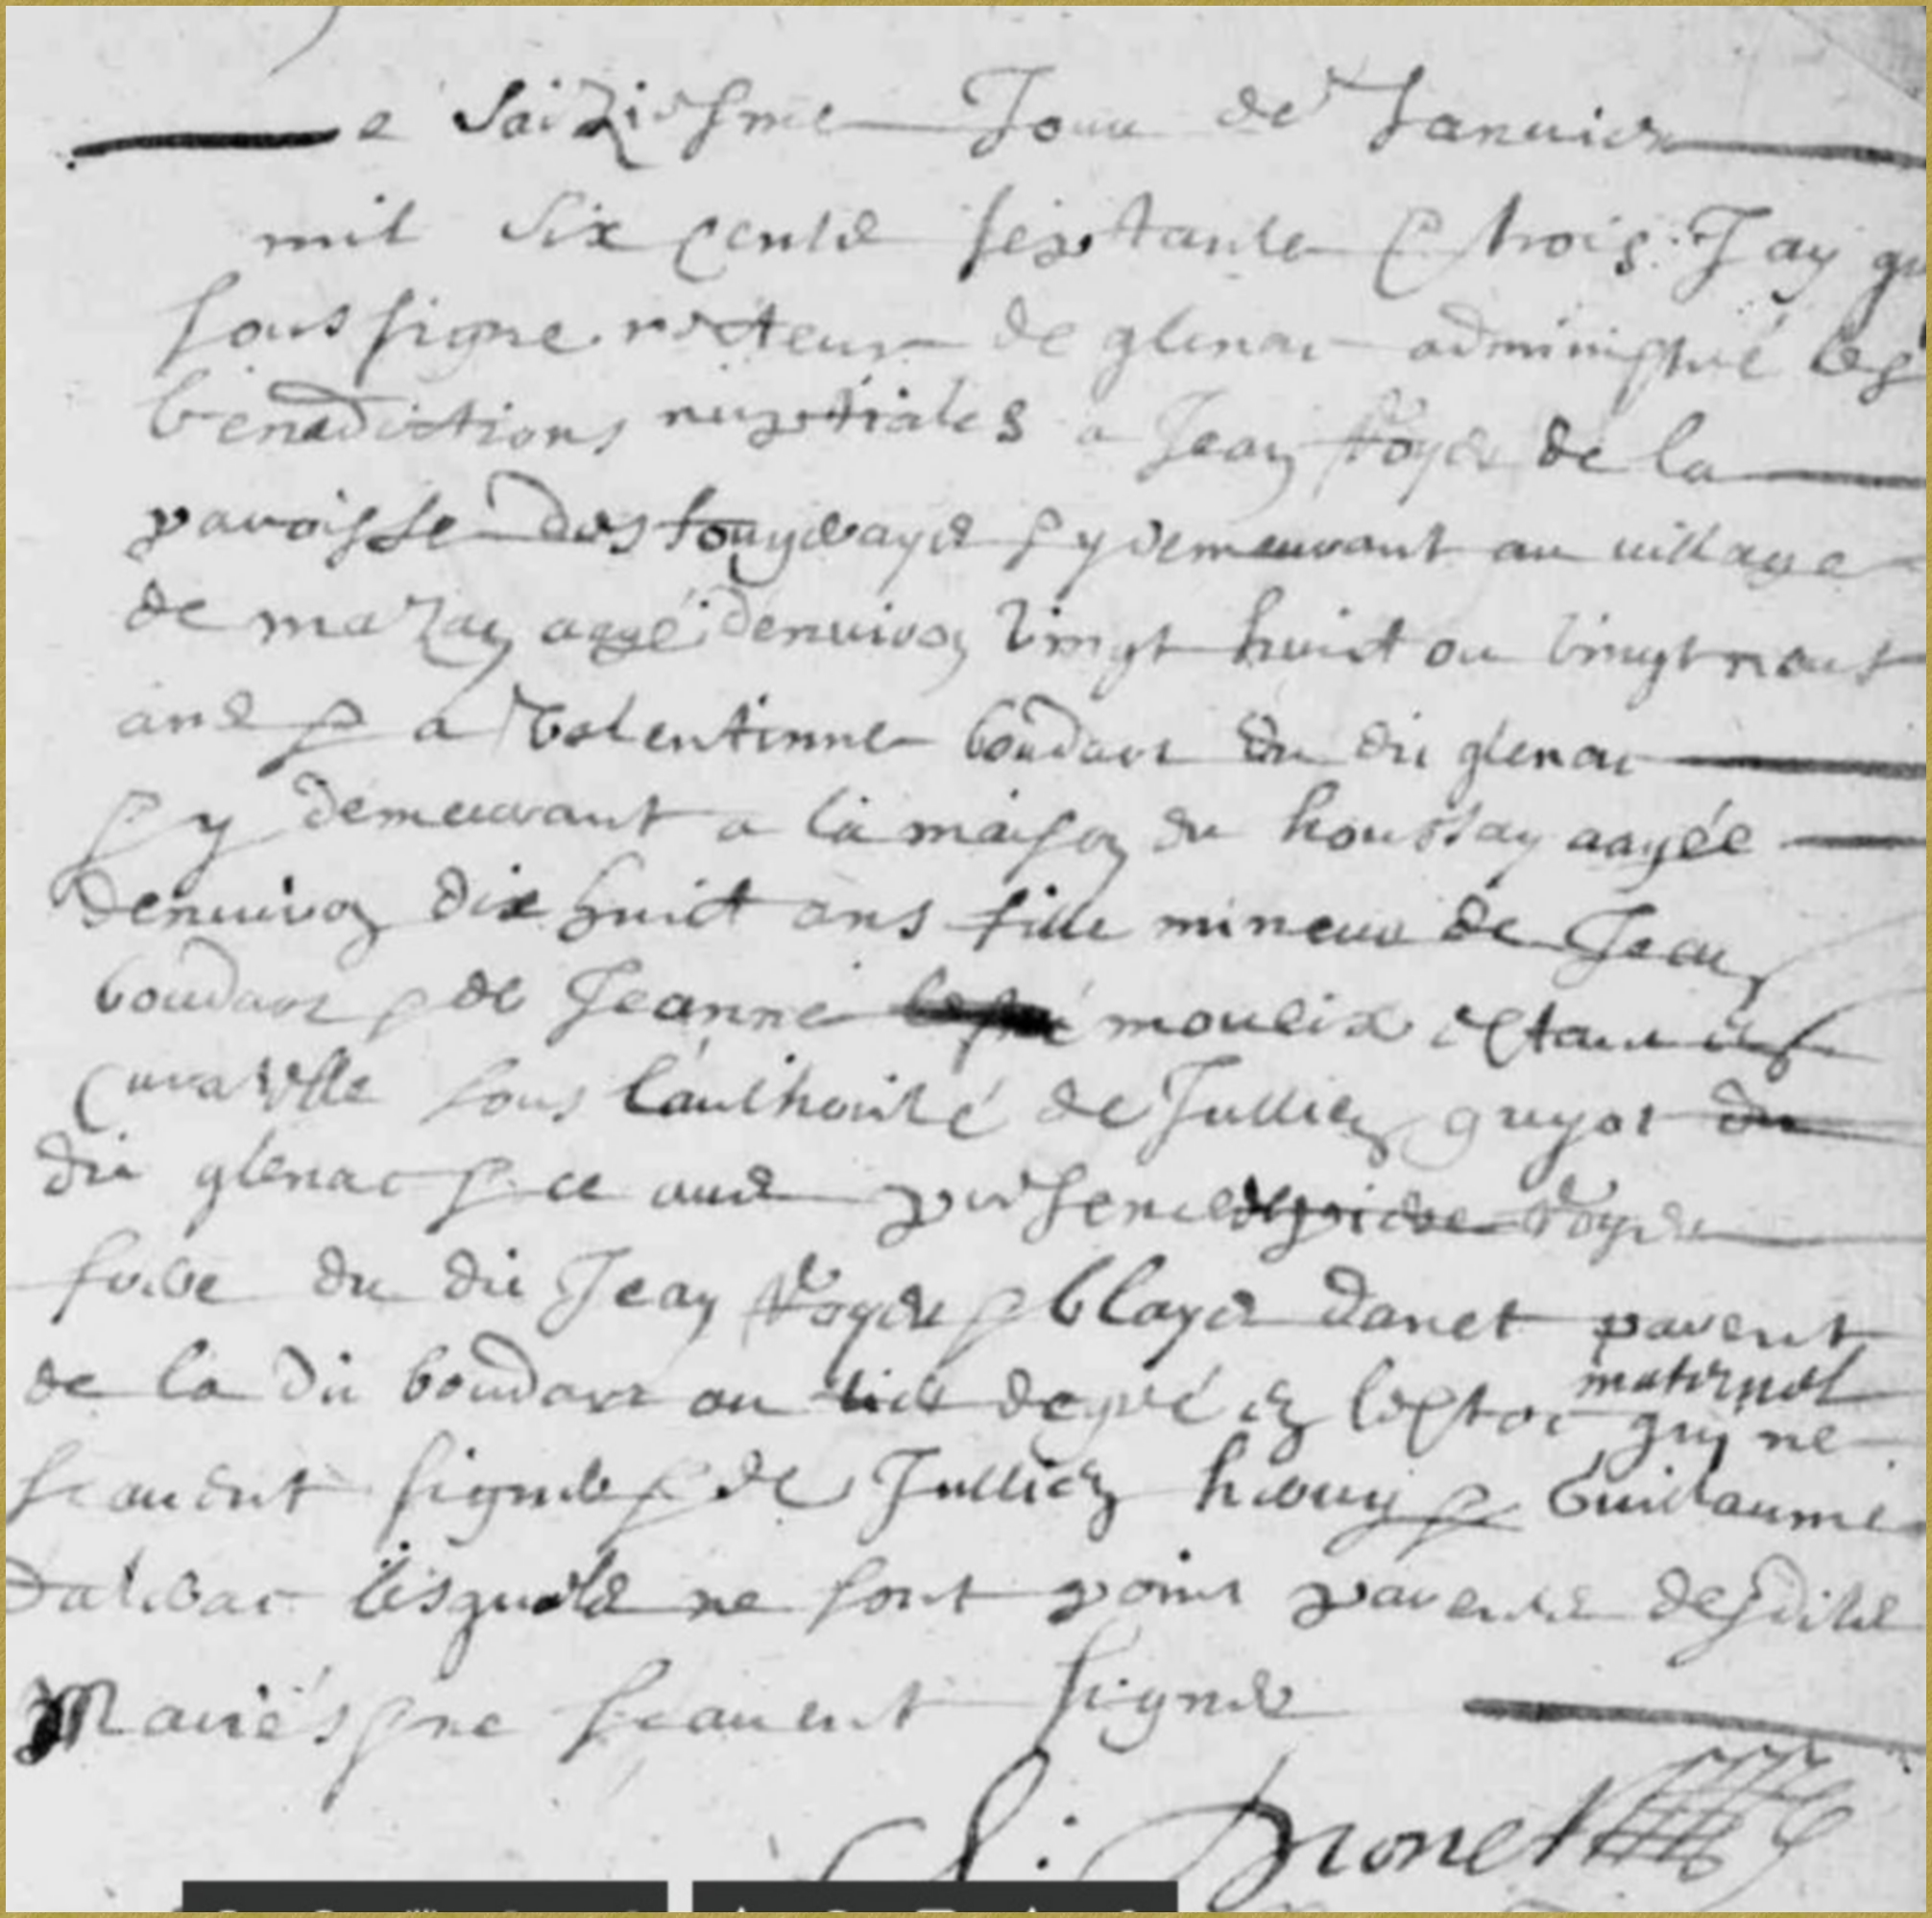 e Saiziesme Jour de Januier
mil Six Cents septante & trois Jay
soussigne recteur de glenac administré les
benedictions nuptiales a Jean Royer de la
paroisse des fougerays & y demeurant au village
de mazay aagé denuiron vingt huict ou vingt neuf
ans & a Valentinne boudart du dit glenac
& y demeurant a la maison du houssay aagée
denuiron dix huict ans fille mineure de Jean
boudart & de Jeanne mouleix estant en
Curatelle sous l'authorité de Jullien guyot du
dit glenac & ce aux presences Royer
frere du dit Jean Royer & blaye danet parent
de la dit boudart au degré en lestoc maternel quy ne
scauent signer & de Jullien heruy & Guillaume
Dalibar lesquels ne sont point parents desdits
Mariés & ne scauent signer